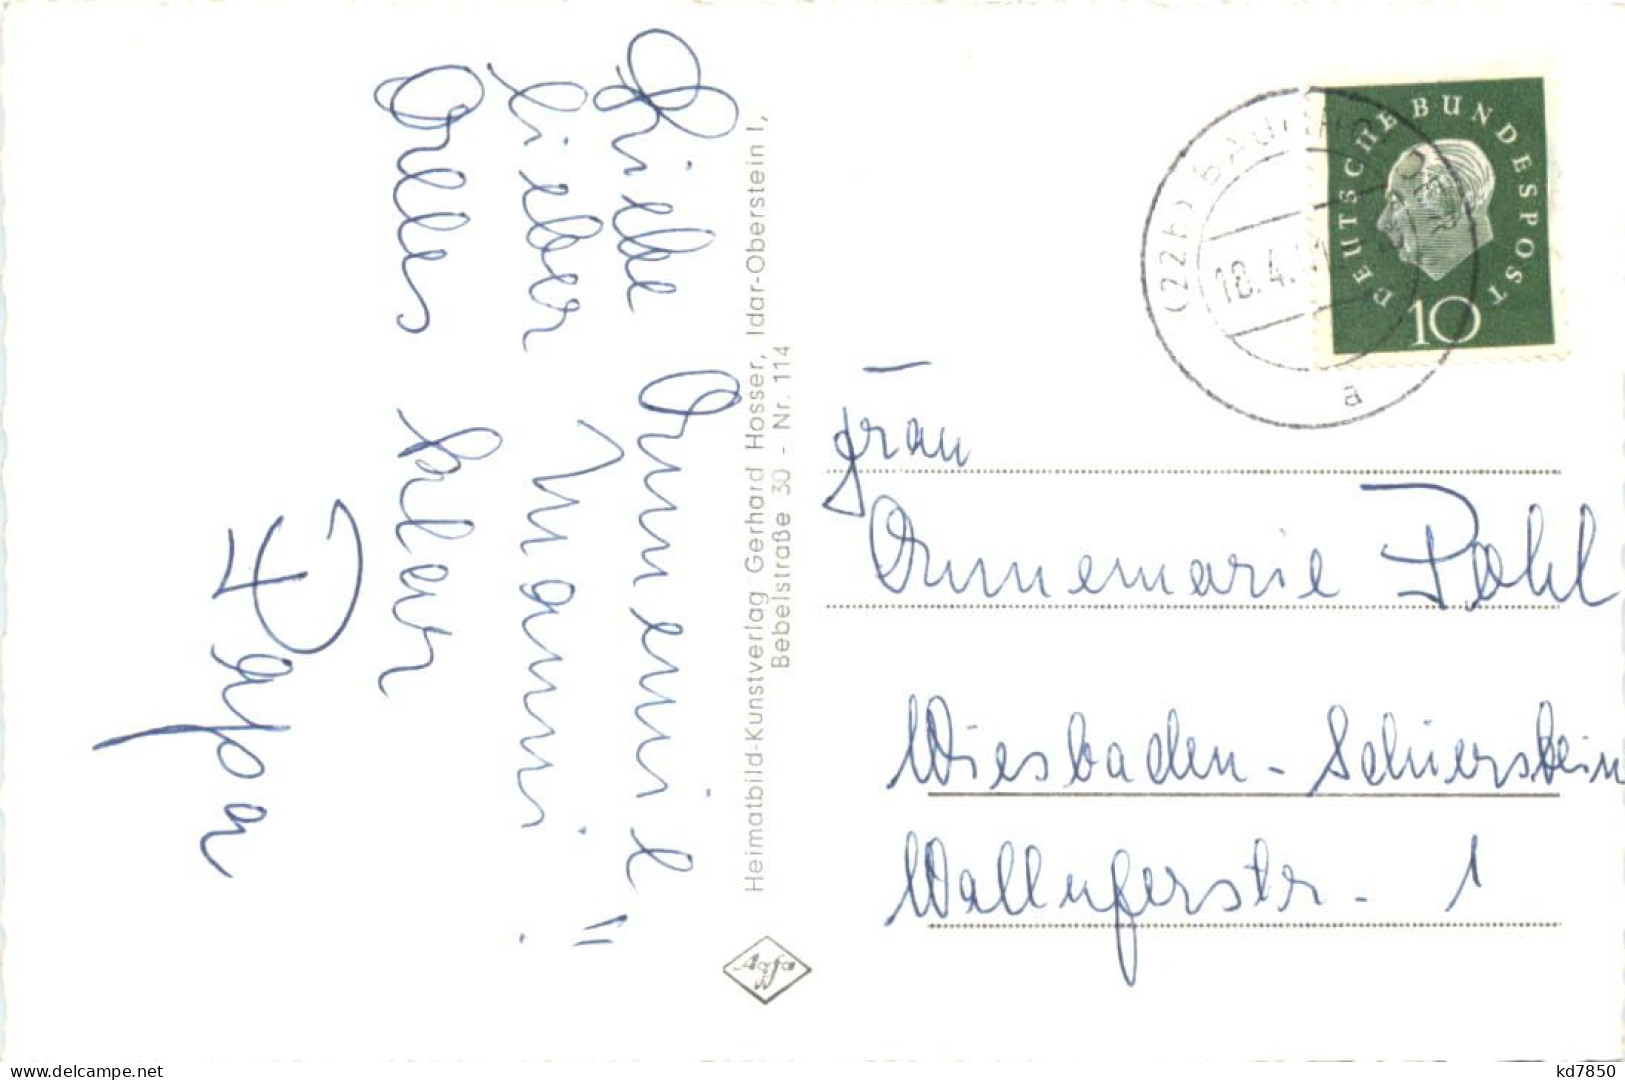 Liebe Annemie
lieber Manni!"
Alles klar
Papa
Heimatbild-Kunstverlag Gerhard Hosser, Idar-Oberstein I,
Bebelstraße 30 - Nr. 114
Agfa
DEUTSCHE BUNDESPOST
10
(22b) BAUMHOLDER
18.4.
a
Frau
Annemarie Pohl
Wiesbaden-Schierstein
Walluferstr. 1
www.delcampe.net
kd7850